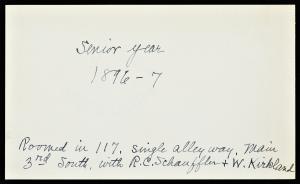 Senior year
1896-7
Roomed in 117, single alley way, Main
3rd South, with R.C. Schauffler + W. Kirkland